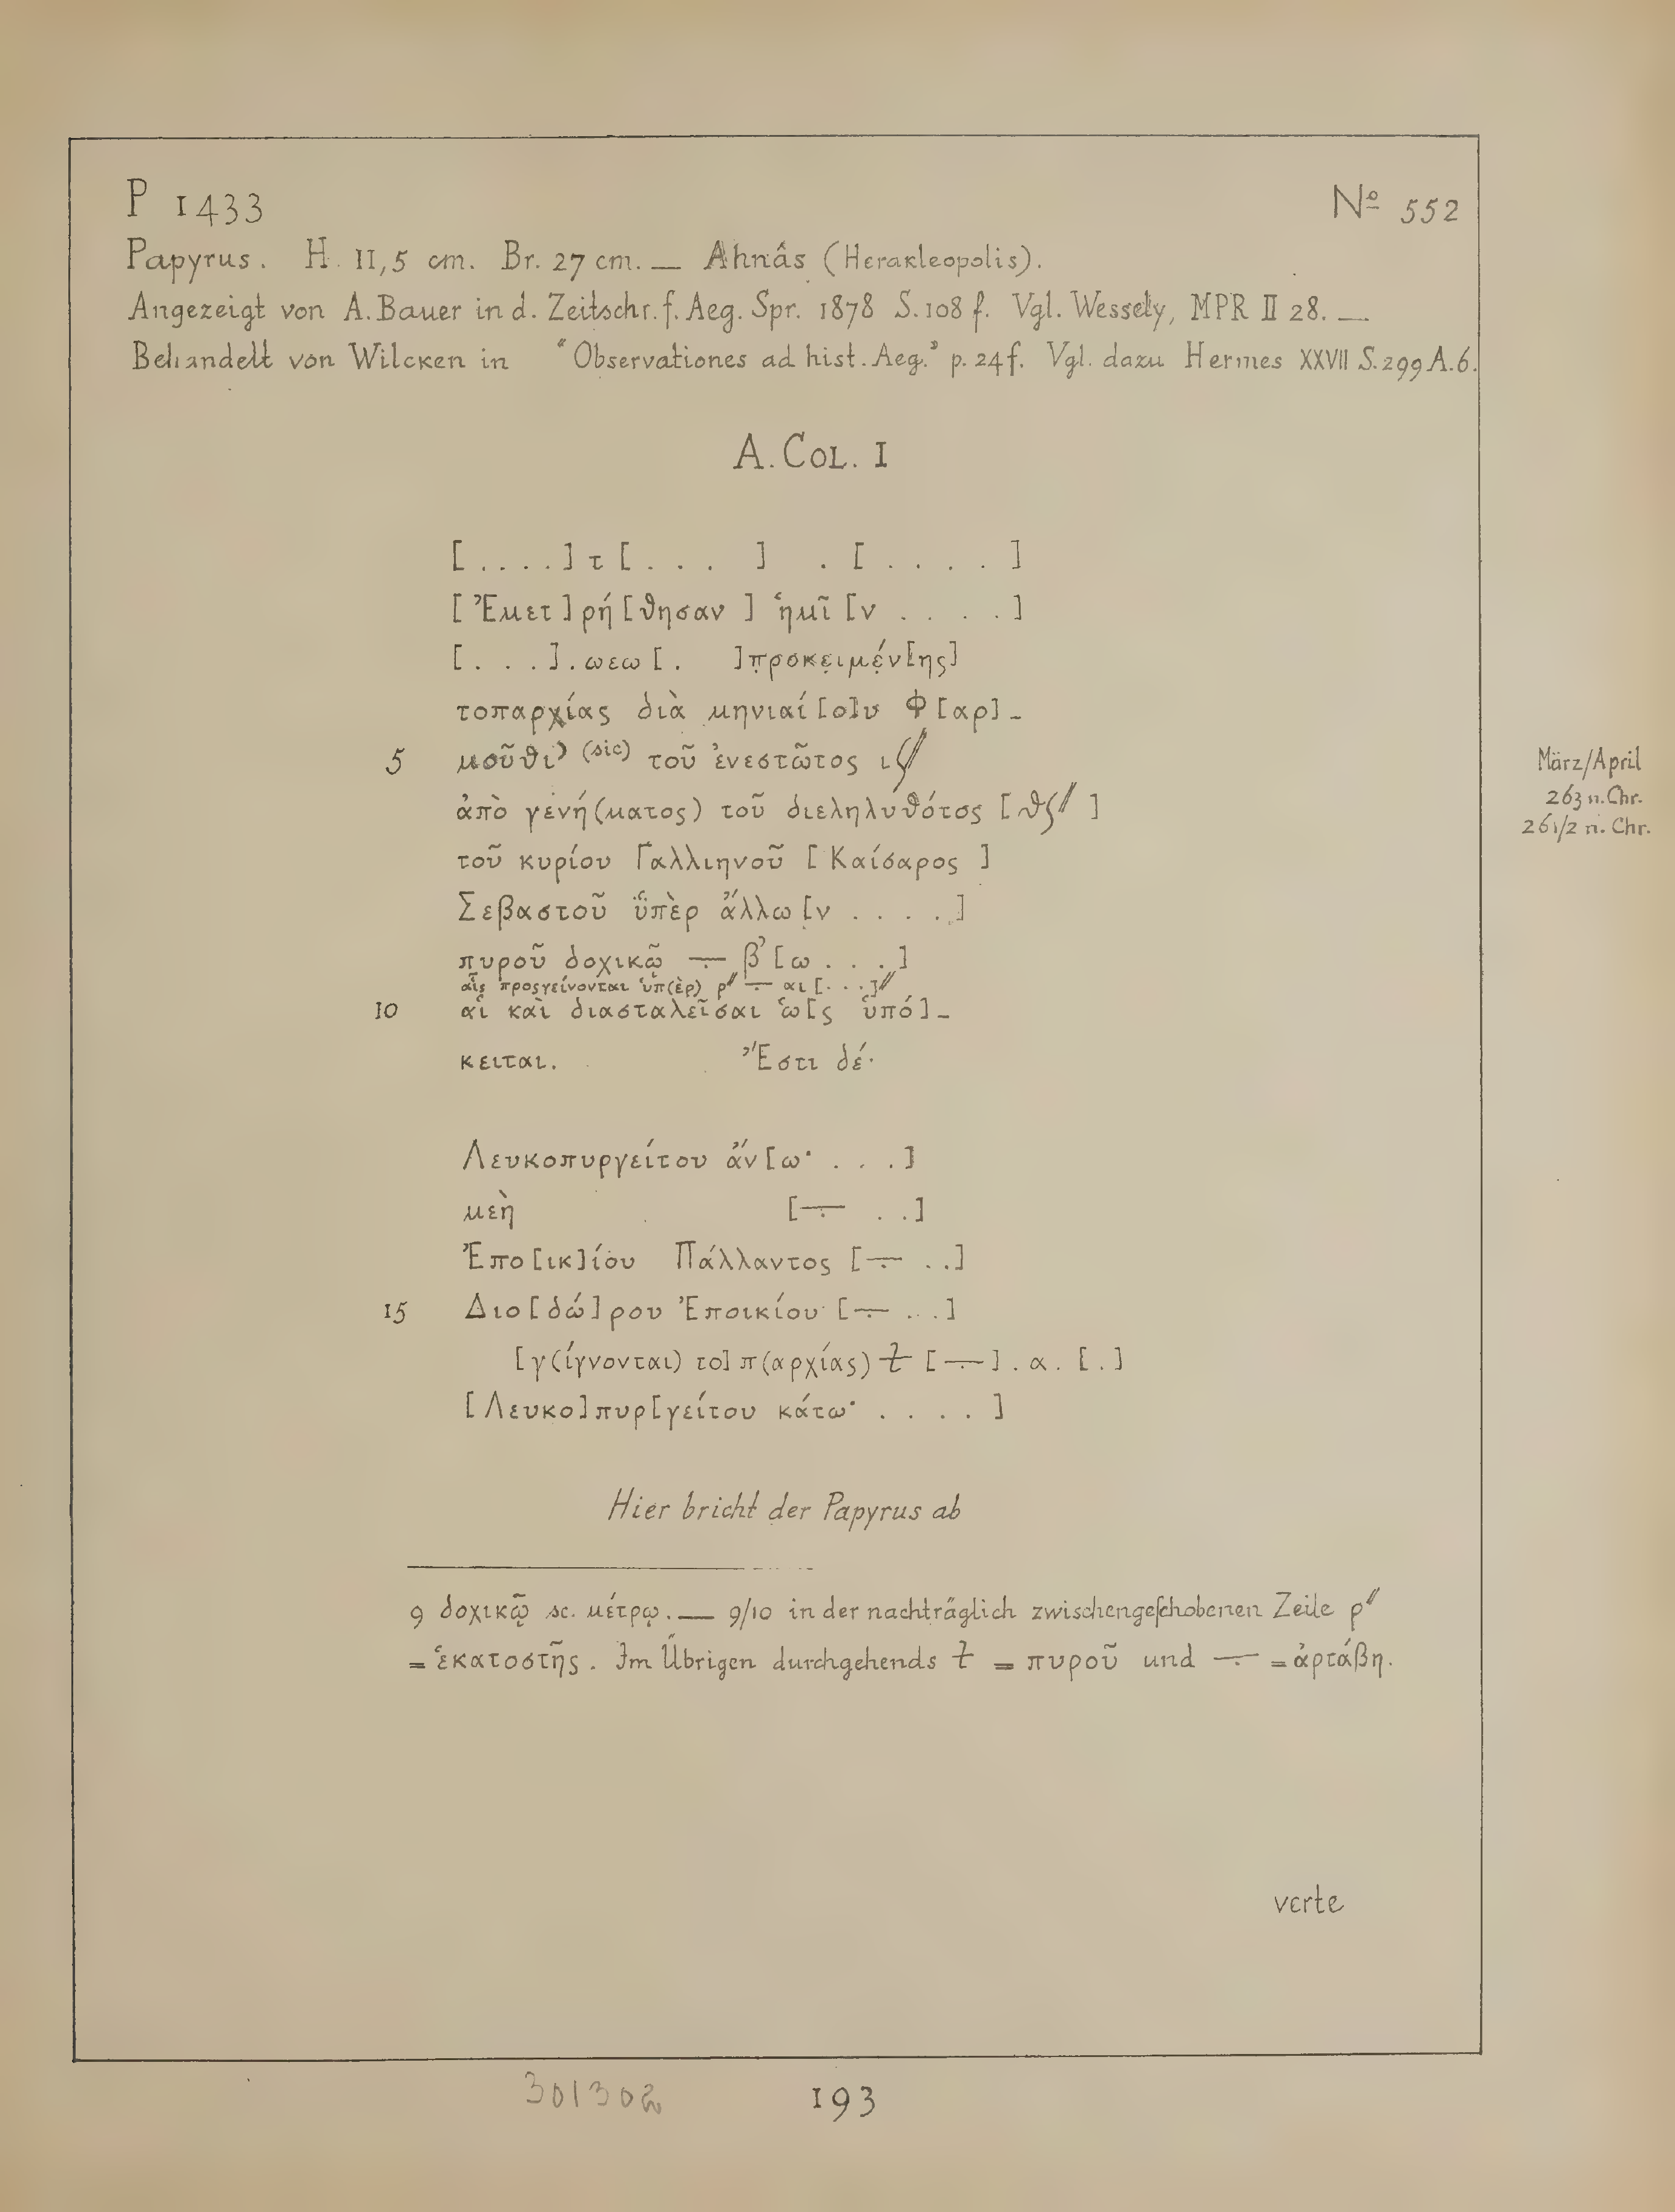 P 1433
Nº 552
Papyrus. H. 11,5 cm. Br. 27 cm. — Ahnâs (Herakleopolis).
Angezeigt von A. Bauer in d. Zeitschr. f. Aeg. Spr. 1878 S. 108 f. Vgl. Wessely, MPR II 28. —
Behandelt von Wilcken in "Observationes ad hist. Aeg." p. 24 f. Vgl. dazu Hermes XXVII S. 299 A. 6.
A. COL. I
[. . . .] τ [. . . ] . [ . . . . ]
[ Ἐμετ ] ρή [θησαν ] ἡμῖ [ν . . . . ]
[. . . ] . ωεω [. ] προκειμέν[ης]
τοπαρχίας διὰ μηνιαί[ο]υ Φ[αρ]-
5 μοῦθι (sic) τοῦ ἐνεστῶτος ι
März/April
263 n. Chr.
ἀπὸ γενή(ματος) τοῦ διεληλυθότος [ θ ]
261/2 n. Chr.
τοῦ κυρίου Γαλλιηνοῦ [ Καίσαρος ]
Σεβαστοῦ ὑπὲρ ἄλλω[ν . . . . ]
πυροῦ δοχικῷ ÷ β [ω . . . ]
αἷς προςγείνονται ὑπ(ὲρ) ρ″ ÷ αι [. . .]″
10 αἱ καὶ διασταλεῖσαι ὡ[ς ὑπό]-
κειται. Ἔστι δέ·
Λευκοπυργείτου ἄν[ω· . . . ]
μεὴ [÷ . . ]
Ἐπο[ικ]ίου Πάλλαντος [÷ . . ]
15 Διο[δώ]ρου Ἐποικίου [÷ . . . ]
[γ(ίγνονται) το]π(αρχίας) ⳨ [÷] . α . [ . ]
[ Λευκο]πυρ[γείτου κάτω· . . . . ]
Hier bricht der Papyrus ab
9 δοχικῷ sc. μέτρῳ. — 9/10 in der nachträglich zwischengeschobenen Zeile ρ″
= ἑκατοστῆς. Im Übrigen durchgehends ⳨ = πυροῦ und ÷ = ἀρτάβη.
verte
301302
193